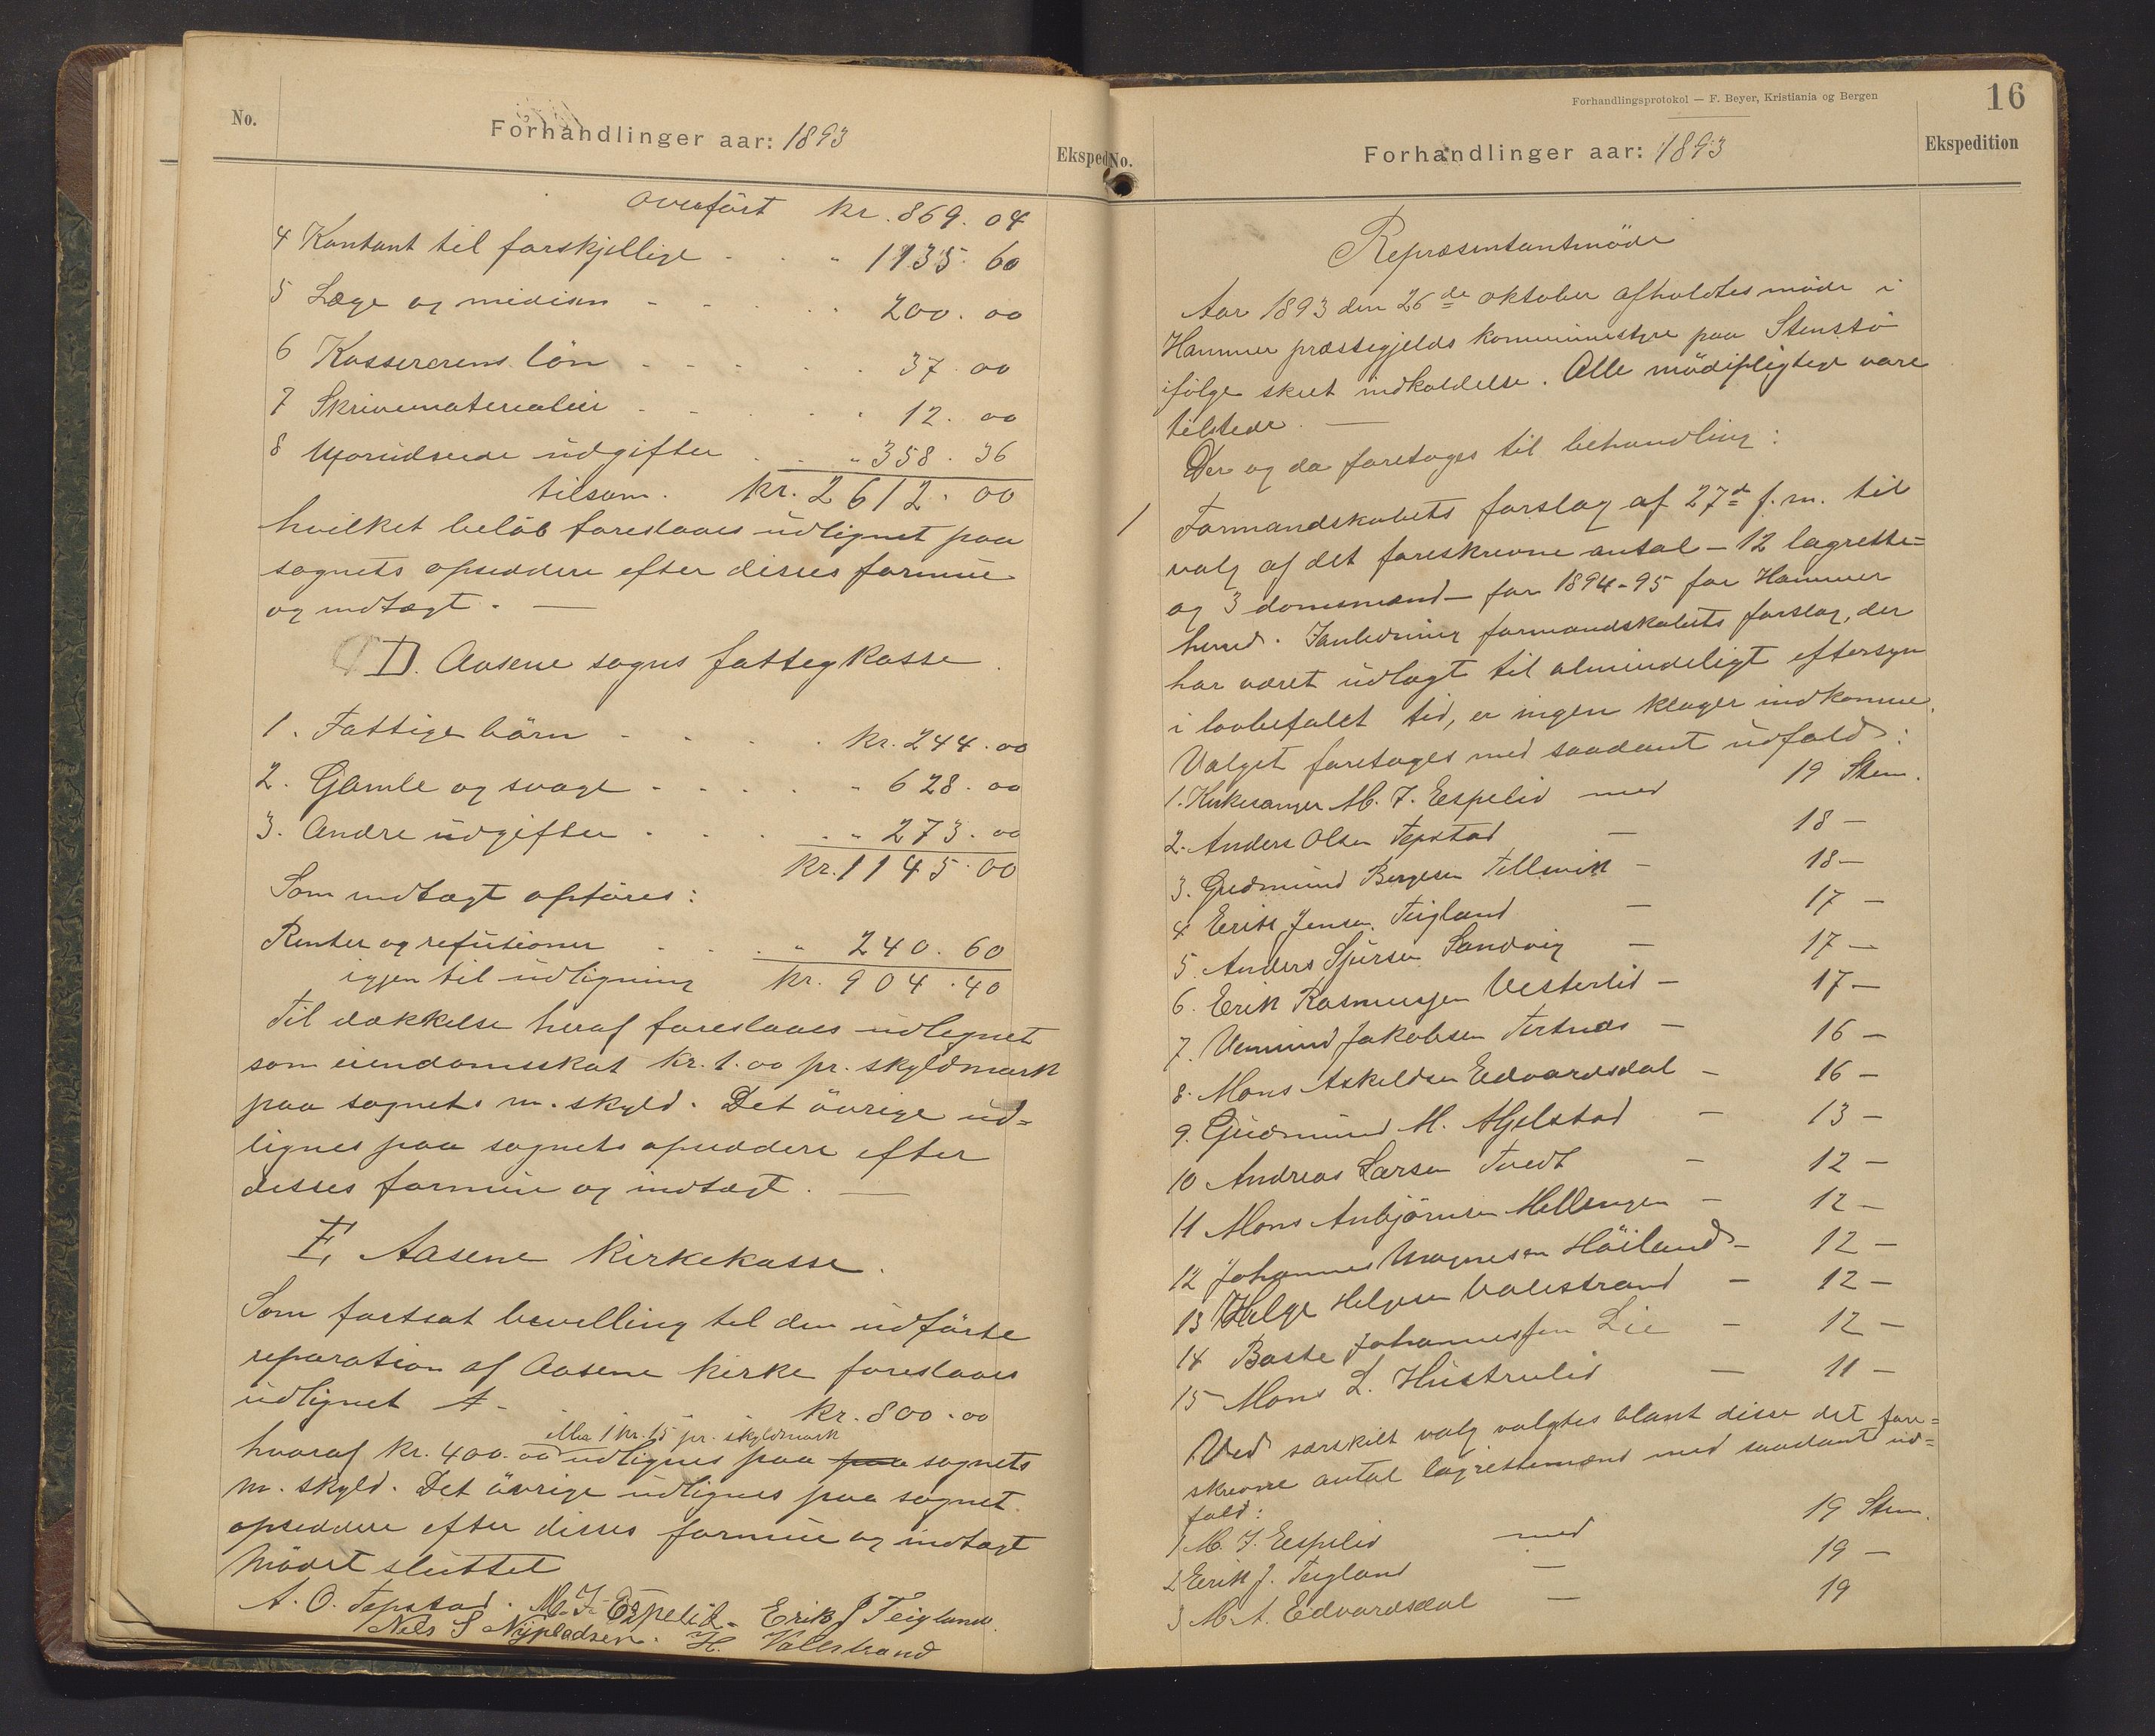 No.
Forhandlinger aar: 1893
Eksped
overført kr. 869.04
4 Kontant til forskjellige - - " 1135.60
5 Læge og medicin - - - - 200.00
6 Kassererens lön - - - - 37.00
7 Skrivematerialier - - - - 12.00
8 Uforudseede udgifter - - " 358.36
tilsam. kr. 2612.00
hvilket belöb foreslaaes udlignet paa
sognets opsiddere efter disses formue
og indtægt. —
D. Aasene sogns fattigkasse.
1. Fattige börn - - - - kr. 244.00
2. Gamle og svage - - - - " 628.00
3. Andre udgifter - - - - " 273.00
kr. 1145.00
Som indtægt opföres:
Renter og refusioner - - - " 240.60
igjen til udligning kr. 904.40
Til dækkelse heraf foreslaaes udlignet
som eiendomsskat kr. 1.00 pr. skyldmark
paa sognets m. skyld. Det övrige ud=
lignes paa sognets opsiddere efter
disses formue og indtægt. —
E, Aasene Kirkekasse.
Som fortsat bevilling til den udförte
reparation af Aasene kirke foreslaaes
udlignet kr. 800.00
eller 1 kr. 15 pr. skyldmark
hvoraf kr. 400.00 udlignes paa paa sognets
m. skyld. Det övrige udlignes paa sognet
opsiddere efter disses formue og indtægt
Mödet sluttet
A. O. Tepstad. M. J. Espelid. Erik J Teigland.
Nels S Nypladsen. H. Valestrand
Forhandlingsprotokol — F. Beyer, Kristiania og Bergen
16
No.
Forhandlinger aar: 1893
Ekspedition
Repræsentantmöde
Aar 1893 den 26de oktober afholdtes möde i
Hammer præstegjelds kommunestyre paa Stenstö
ifölge skeet indkaldelse. Alle mödepligtige vare
tilstede. —
Der og da foretoges til behandling:
1 Formandskabets forslag af 27de f. m. til
valg af det foreskrevne antal – 12 lagrette=
og 3 domsmænd – for 1894-95 for Hammer
herred. I anledning formandskabets forslag, der
har været udlagt til almindeligt eftersyn
i lovbefalet tid, er ingen klager indkomne.
Valget foretoges med saadant udfald:
1. Kirkesanger M. J. Espelid med 19 Stem.
2. Anders Olsen Tepstad — 18 —
3. Gudmund Børgesen Tellevik — 18 —
4 Erik Jensen Teigland — 17 —
5. Anders Sjursen Sandvig — 17 —
6. Erik Rasmussen Vesterlid — 17 —
7. Vemund Jakobsen Tertnæs — 16 —
8. Mons Askeldsen Edvardsdal — 16 —
9. Gudmund M. Mjelstad — 13 —
10 Andreas Larsen Tvedt — 12 —
11 Mons Anbjörnsen Mellingen — 12 —
12 Johannes Magnesen Höiland — 12 —
13 Helge Helgesen Valestrand — 12 —
14 Baste Johannessen Lie — 12 —
15 Mons L. Hustrulid — 11 —
Ved særskilt valg valgtes blant disse det fore=
skrevne antal lagrettemænd med saadant ud=
fald:
1 M. J. Espelid med 19 Stem.
2 Erik J. Teigland — 19 —
3 M. A. Edvardsdal — 19